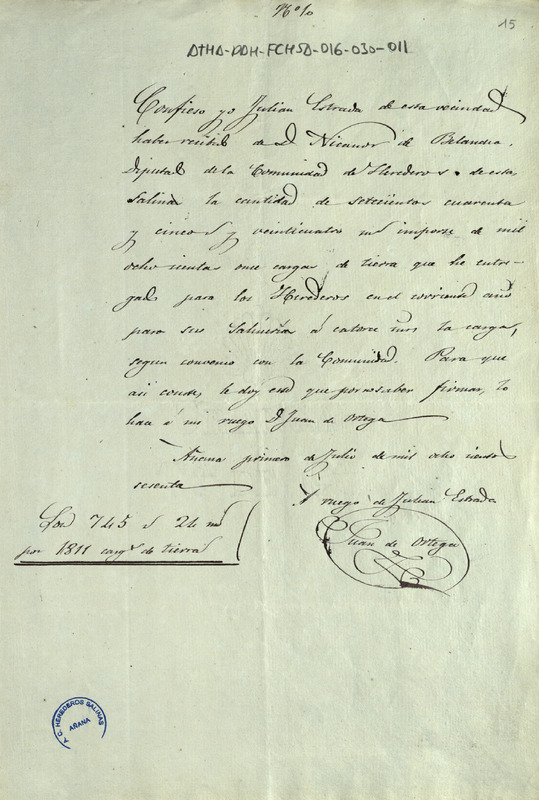 Nº 10
15
DTHA-DDH-FCHSD-016-030-011
Confieso yo Julian Estrada de esta vecindad
haber recibido de D. Nicanor de Belandia,
Diputado de la Comunidad de Herederos de esta
Salina la cantidad de setecientos cuarenta
y cinco rs y veinticuatro ms importe de mil
ocho cientas once cargas de tierra que he entre-
gado para los Herederos en el corriente año
para sus Salinerías á catorce mrs la carga,
segun convenio con la Comunidad. Para que
asi conste, le doy este que por no saber firmar, lo
hace á mi ruego D. Juan de Ortega
Añana primero de Julio de mil ocho cientos
sesenta
A ruego de Julian Estrada
Juan de Ortega
Son 745 rs 24 ms
por 1811 cargs de tierra
A.C. HEREDEROS SALINAS
AÑANA